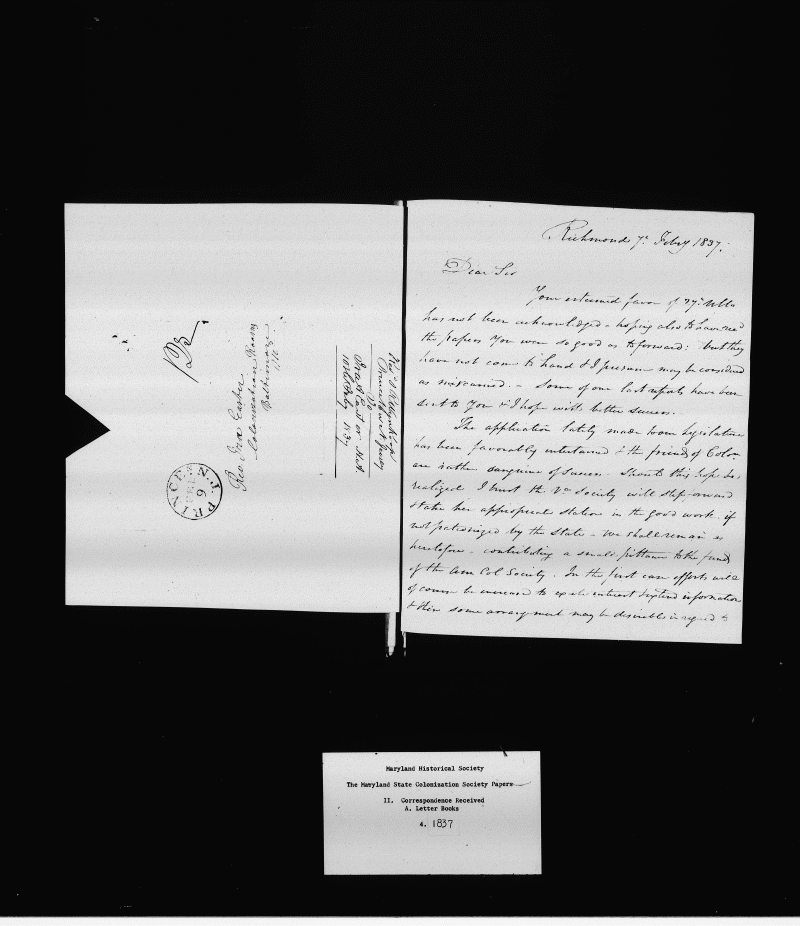 12½
Rev. Ira Easter
Colonization Rooms
Baltimore
Md
PRINCE N.J.
6
Princeton N. Jersey
To
Ira A Easter
10th Feby 1837
Richmond 7th Feby 1837.
Dear Sir
Your esteemed favor of 27th Ulto
has not been acknowledged - hoping also to have recd
the papers you were so good as to forward: but they
have not come to hand & I presume may be considered
as miscarried. - Some of our last reports have been
sent to you & I hope with better success.
The application lately made to our Legislature
has been favorably entertained & the friends of Colon
are rather sanguine of success. Should this hope be
realized I trust the Va Society will step forward
& take her appropriate station in the good work - if
not patronized by the State - we shall remain as
heretofore - contributing a small pittance to the funds
of the Am Col Society. In the first case efforts will
of course be increased to excite interest & extend information
& then some arrangement may be desirable in regard to
Maryland Historical Society
The Maryland State Colonization Society Papers
II. Correspondence Received
A. Letter Books
4. 1837